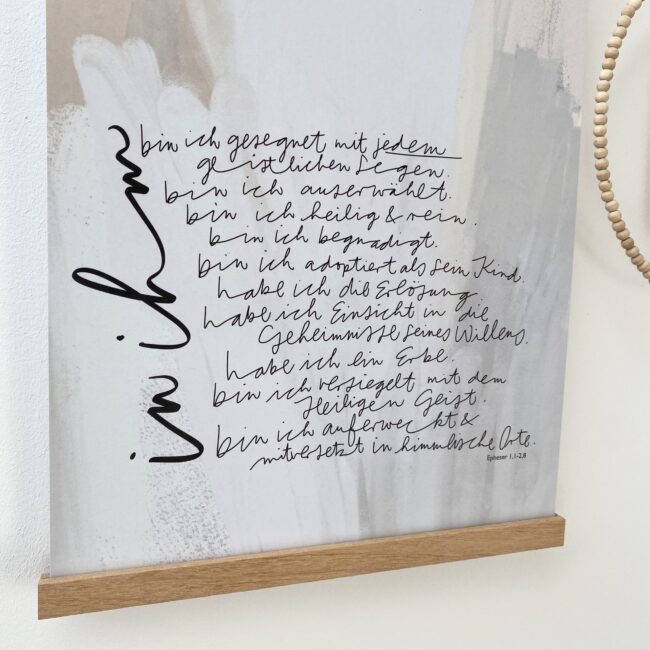 in ihm
bin ich gesegnet mit jedem
geistlichen Segen.
bin ich auserwählt.
bin ich heilig & rein.
bin ich begnadigt.
bin ich adoptiert als sein Kind.
habe ich die Erlösung
habe ich Einsicht in die
Geheimnisse seines Willens.
habe ich ein Erbe.
bin ich versiegelt mit dem
Heiligen Geist.
bin ich auferweckt &
mitversetzt in himmlische Orte.
Epheser 1,1-2,8